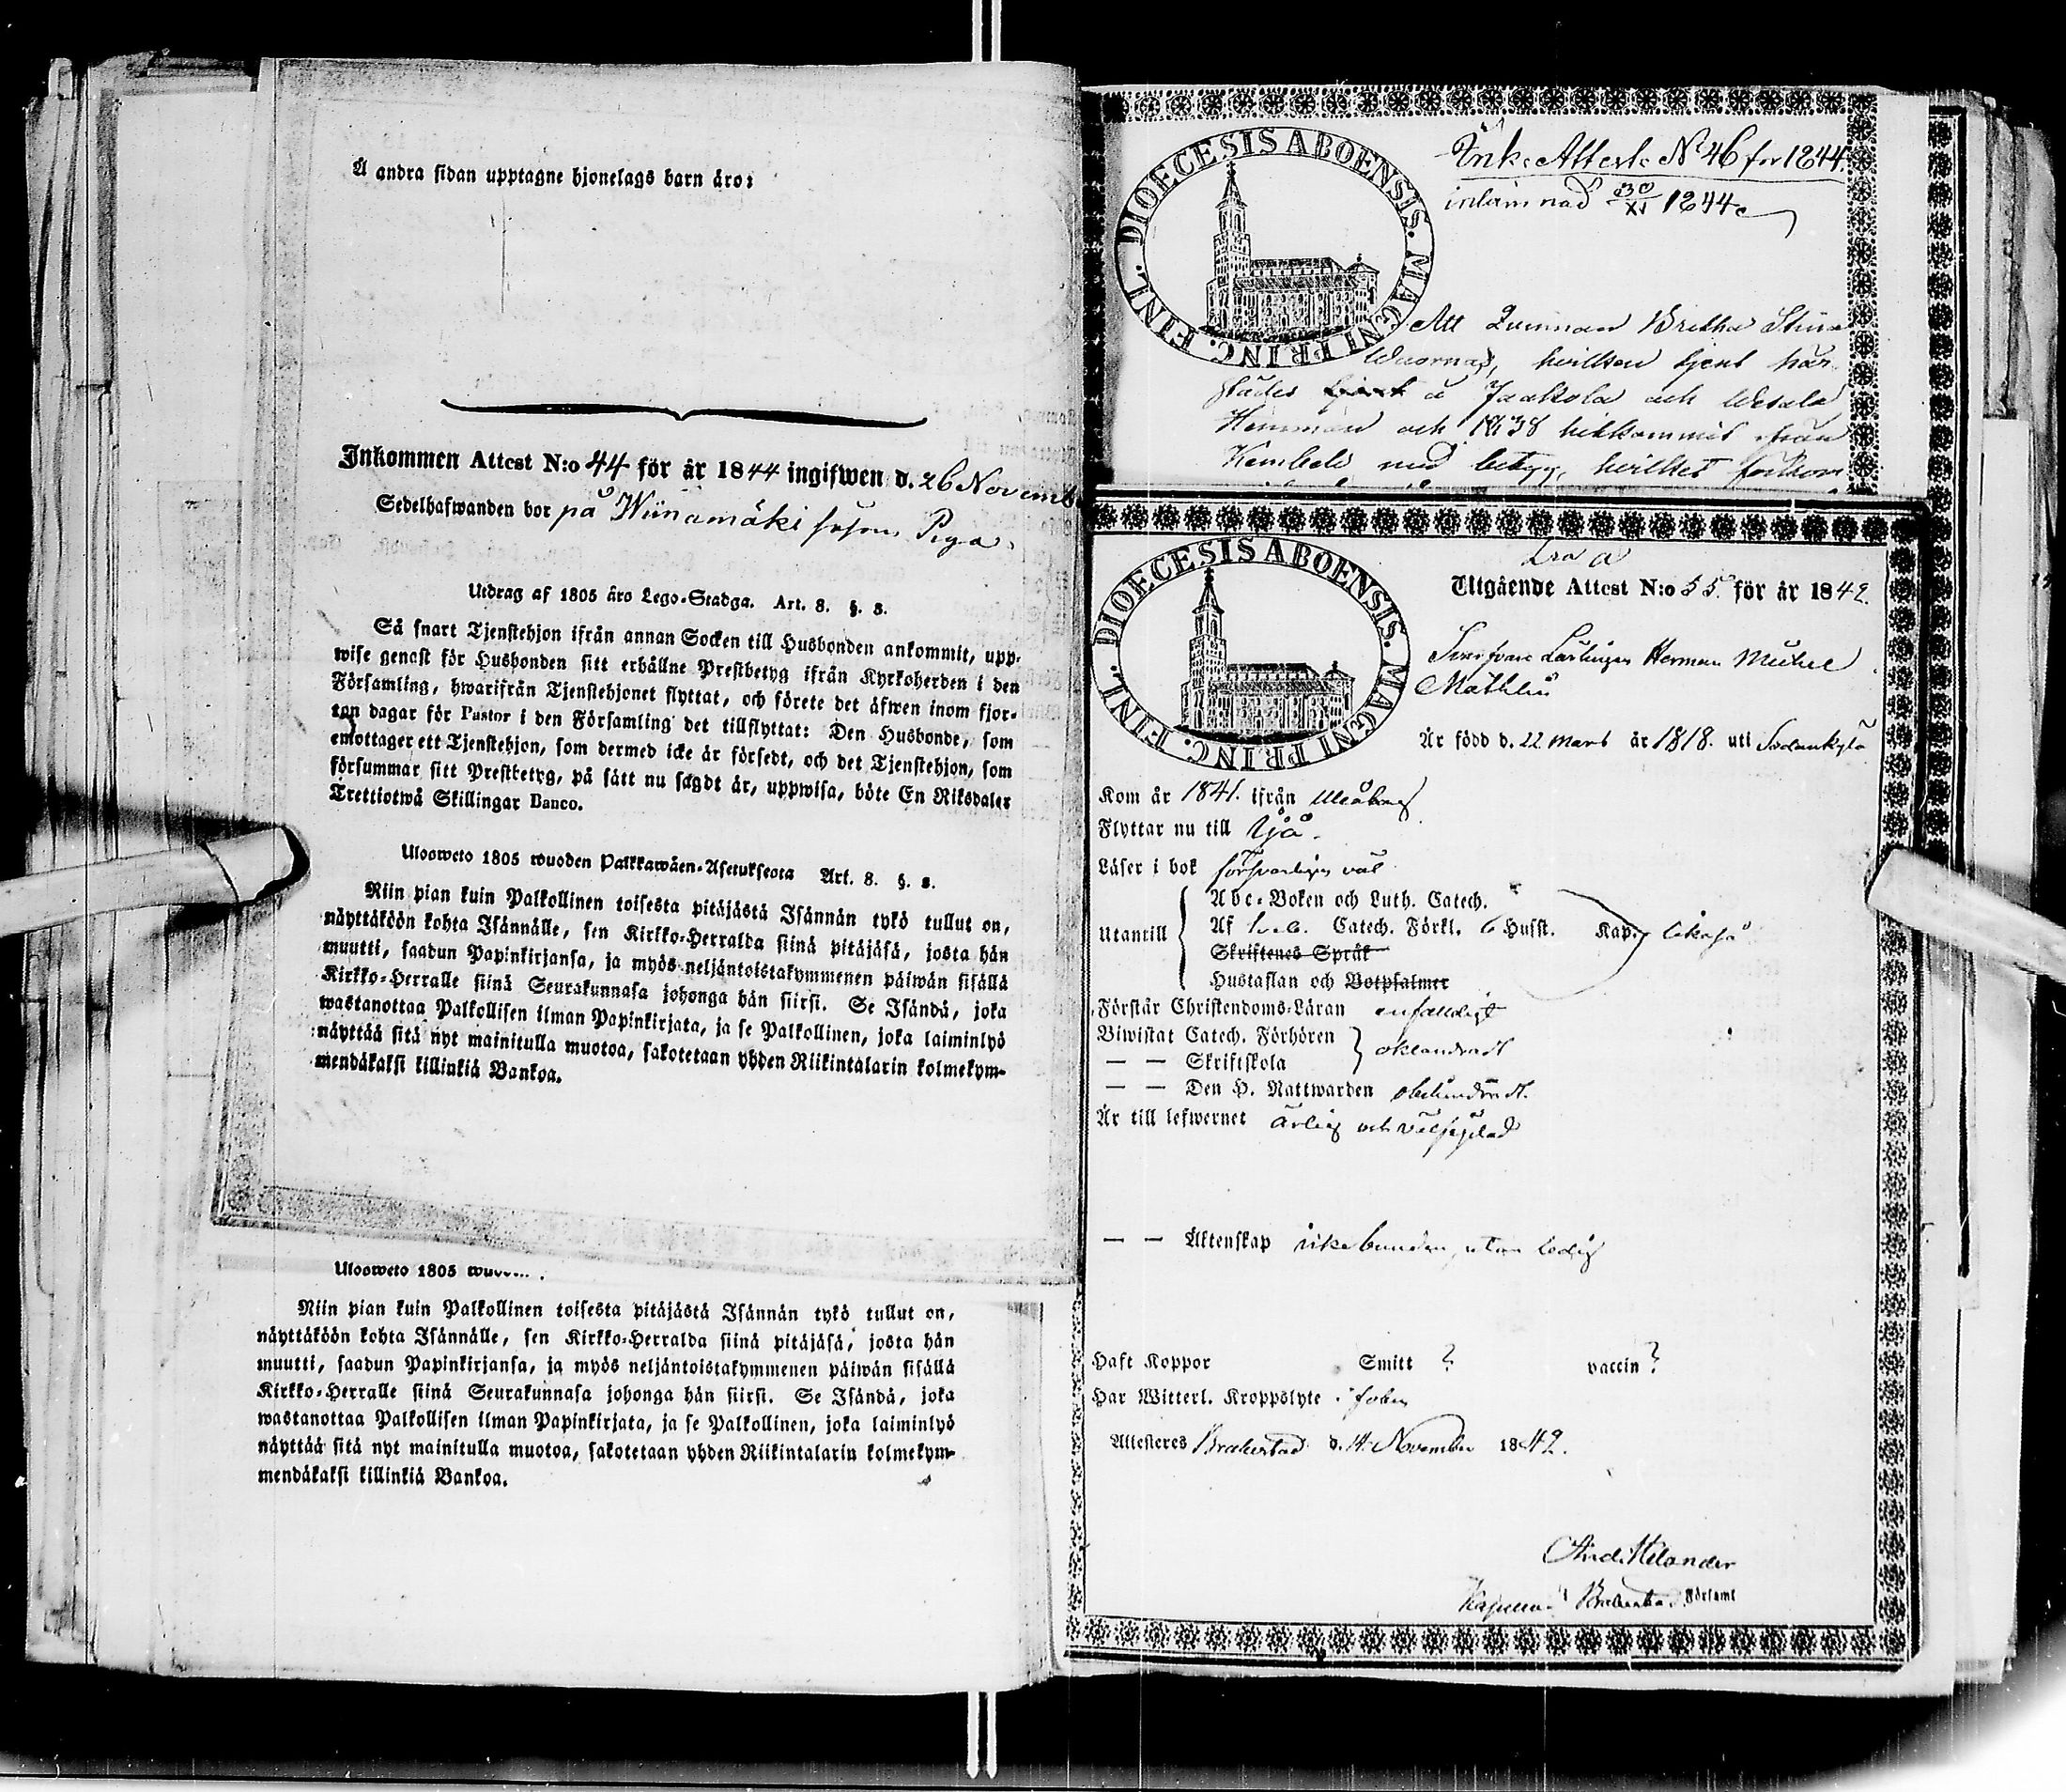 Å andra sidan upptagne hjonelags barn äro:
Inkommen Attest N:o 44 för år 1844 ingifwen d. 26 Novemb
Sedelhafwanden bor på Wiinamäki såsom Piga.
Utdrag af 1805 års Lego-Stadga. Art. 8. §. 8.
Så snart Tjenstehjon ifrån annan Socken till Husbonden ankommit, upp-
wise genast för Husbonden sitt erhållne Prestbetyg ifrån Kyrkoherden i den
Församling, hwarifrån Tjenstehjonet flyttat, och förete det äfwen inom fjor-
ton dagar för Pastor i den Församling det tillflyttat: Den Husbonde, som
emottager ett Tjenstehjon, som dermed icke är försedt, och det Tjenstehjon, som
försummar sitt Prestbetyg, på sätt nu sagdt är, uppwisa, böte En Riksdaler
Trettiotwå Skillingar Banco.
Ulosweto 1805 wuoden Palkkawäen-Asetuksesta Art. 8. §. 8.
Niin pian kuin Palkollinen toisesta pitäjästä Isännän tykö tullut on,
näyttäköön kohta Isännälle, sen Kirkko-Herralda siinä pitäjäsä, josta hän
muutti, saadun Papinkirjansa, ja myös neljäntoistakymmenen päiwän sisällä
Kirkko-Herralle siinä Seurakunnasa johonga hän siirsi. Se Isändä, joka
wastanottaa Palkollisen ilman Papinkirjata, ja se Palkollinen, joka laiminlyö
näyttää sitä nyt mainitulla muotoa, sakotetaan yhden Riikintalarin kolmekym-
mendäkaksi killinkiä Bankoa.
Ulosweto 1805
Niin pian kuin Palkollinen toisesta pitäjästä Isännän tykö tullut on,
näyttäköön kohta Isännälle, sen Kirkko-Herralda siinä pitäjäsä, josta hän
muutti, saadun Papinkirjansa, ja myös neljäntoistakymmenen päiwän sisällä
Kirkko-Herralle siinä Seurakunnasa johonga hän siirsi. Se Isändä, joka
wastanottaa Palkollisen ilman Papinkirjata, ja se Palkollinen, joka laiminlyö
näyttää sitä nyt mainitulla muotoa, sakotetaan yhden Riikintalarin kolmekym-
mendäkaksi killinkiä Bankoa.
DIOECESIS ABOENSIS. MAGNI PRINC. FINL.
Ink. Attest. No 46 för 1844.
inlämnad 30/XI 1844
Att Qvinnan Britha Stina
Waornas, hvilken tjent här-
städes å Jaakola och Wesala
Hemman och 1838 hitkommit ifrån
Kembele med betyg, hvilket förkom
DIOECESIS ABOENSIS. MAGNI PRINC. FINL.
Utgående Attest N:o 55. för år 1842.
Svarfvare Lärlingen Herman Michel
Mathlin
Är född d. 22 Mars år 1818. uti Sodankylä
Kom år 1841. ifrån Uleåborg
Flyttar nu till Ijå.
Läser i bok försvarligen väl
Abc-Boken och Luth. Catech.
Utantill Af Sveb. Catech. Förkl. 6 Hufst. Kap. likaså
Skriftenes Språk
Hustaflan och Botpsalmer
Förstår Christendoms-Läran enfaldigt
Biwistat Catech. Förhören oklandradt
— — Skriftskola
— — Den H. Nattwarden oklandradt.
Är till lefwernet ärlig och välfrejdad
— — Äktenskap icke bunden, utan ledig
Haft Koppor Smitt ? vaccin ?
Har Witterl. Kroppslyte
Attesteres Brahestad d. 14 November 1842.
And. Helander
Kapellan i Brahestad Förtaml